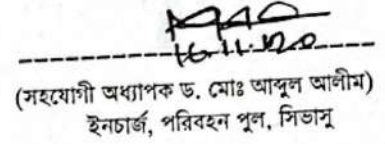 16.11.2020
(সহযোগী অধ্যাপক ড. মোঃ আব্দুল আলীম)
ইনচার্জ, পরিবহন পুল, সিভাসু